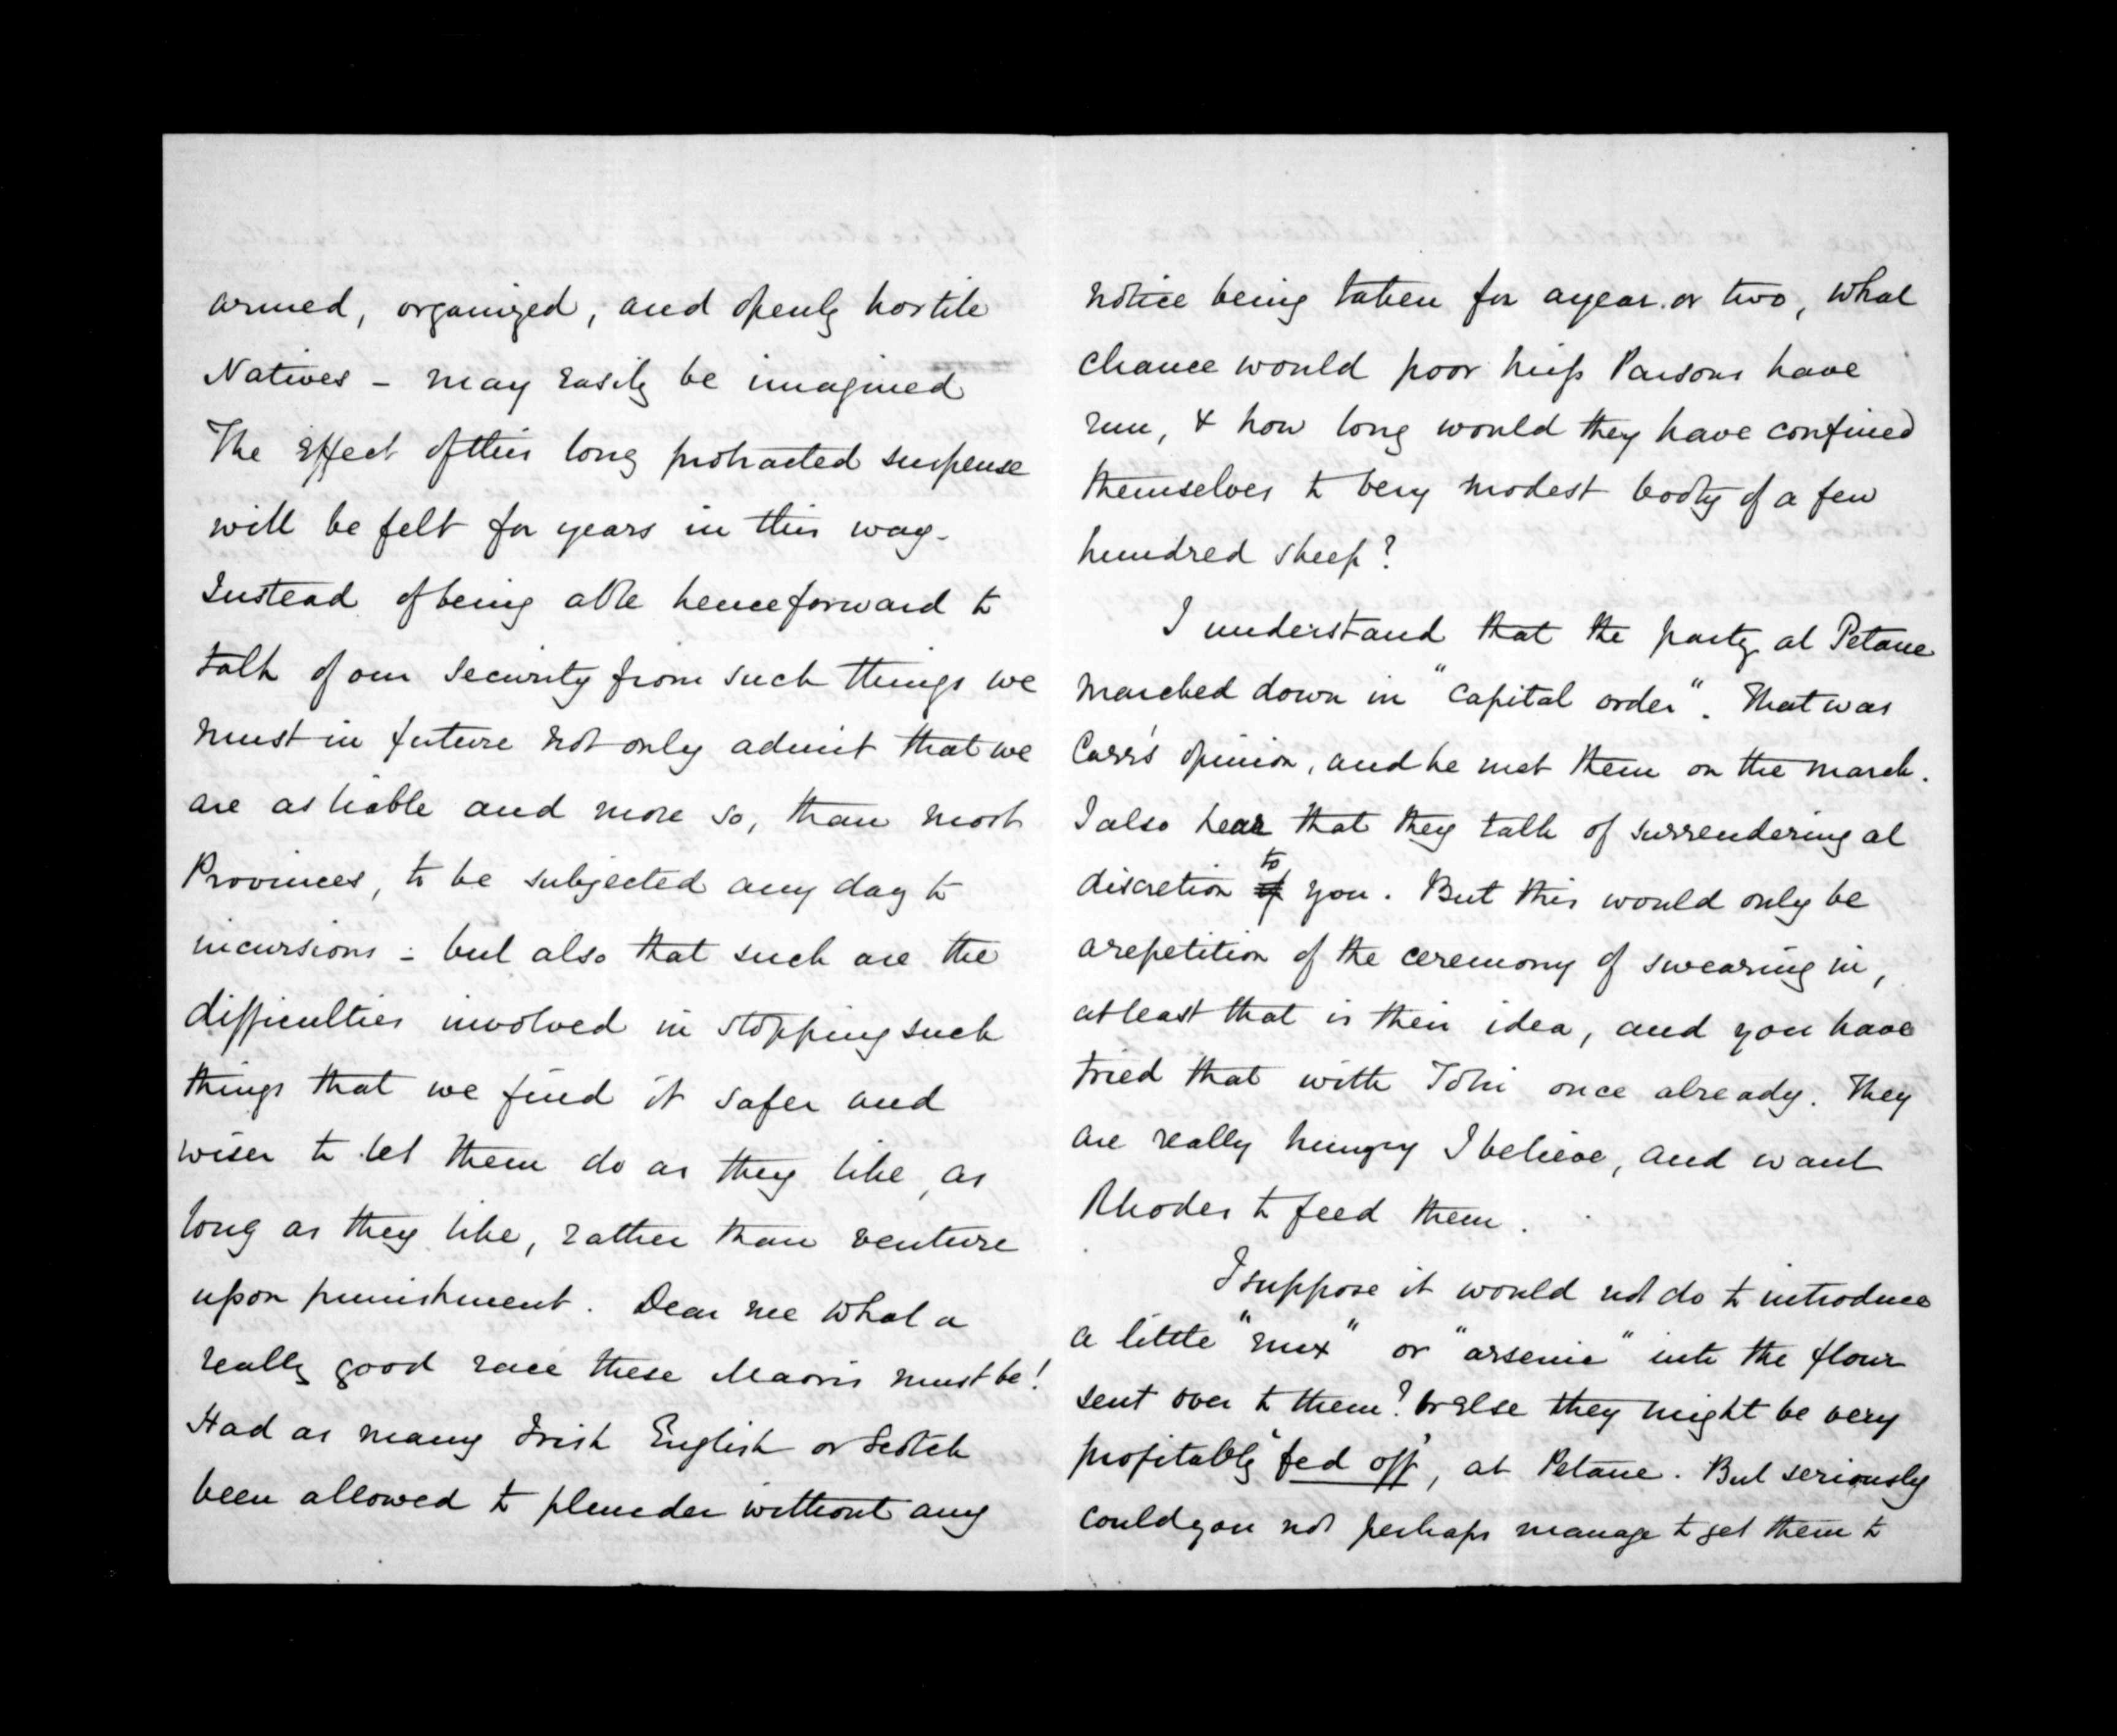 armed, organized, and openly hostile
Natives - may easily be imagined
The effect of this long protracted suspense
will be felt for years in this way -
Instead of being able henceforward to
talk of our security from such things we
must in future not only admit that we
are as liable and more so, than most
Provinces, to be subjected any day to
incursions - but also that such are the
difficulties involved in stopping such
things that we find it safer and
wiser to let them do as they like, as
long as they like, rather than venture
upon punishment. Dear me what a
really good race these Maoris must be!
Had as many Irish English or Scotch
been allowed to plunder without any
notice being taken for a year or two, what
chance would poor Miss Parsons have
run, & how long would they have confined
themselves to very modest booty of a few
hundred sheep?
I understand that the party at Petane
marched down in "capital order". That was
Carr's opinion, and he met them on the march.
I also hear that they talk of surrendering at
to
discretion of you. But this would only be
a repetition of the ceremony of swearing in,
at least that is their idea, and you have
tried that with Tohi once already. They
are really hungry I believe, and want
Rhodes to feed them.
I suppose it would not do to introduce
a little "nux" or "arsenic" into the flour
sent over to them? Or else they might be very
profitably "fed off", at Petane. But seriously
could you not perhaps manage to get them to